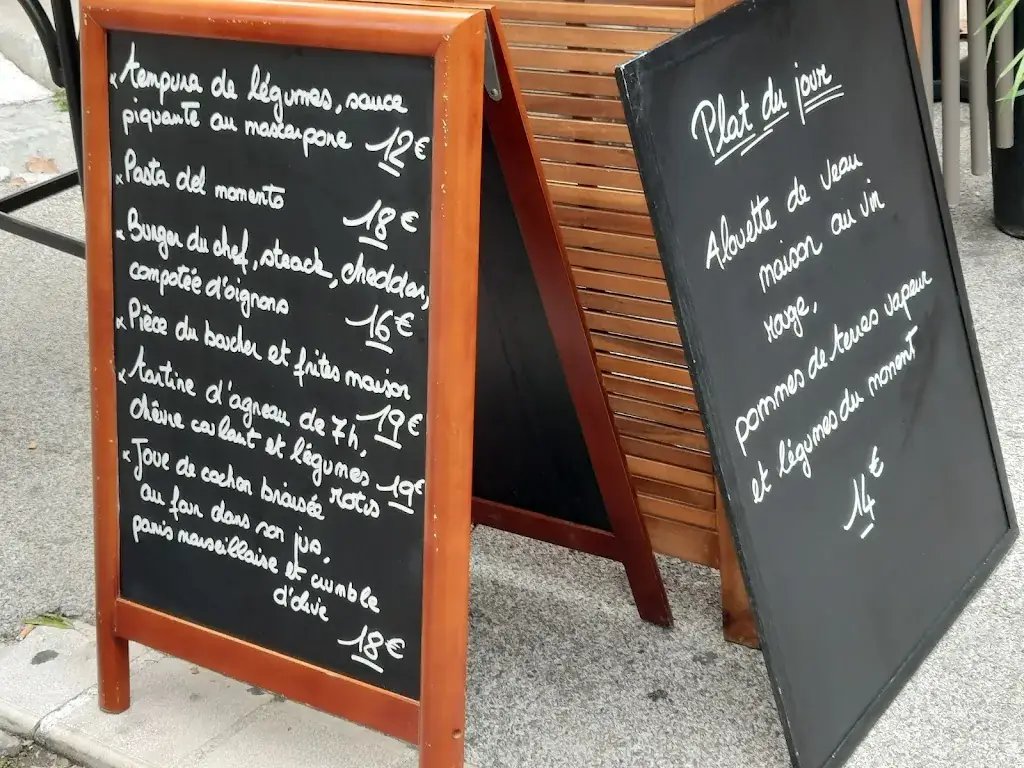 x tempura de légumes, sauce
piquante au mascarpone 12€
x Pasta del momento
18€
x Burger du chef, steack, cheddar,
compotée d'oignons
16€
x Pièce du boucher et frites maison
19€
x tartine d'agneau de 7h,
chèvre coulant et légumes
rotis 19€
x Joue de cochon braisée
au four dans son jus.
panis marseillaise et crumble
d'olive
18€
Plat du jour
Alouette de veau
maison au vin
rouge,
pommes de terres vapeur
et légumes du moment
14€